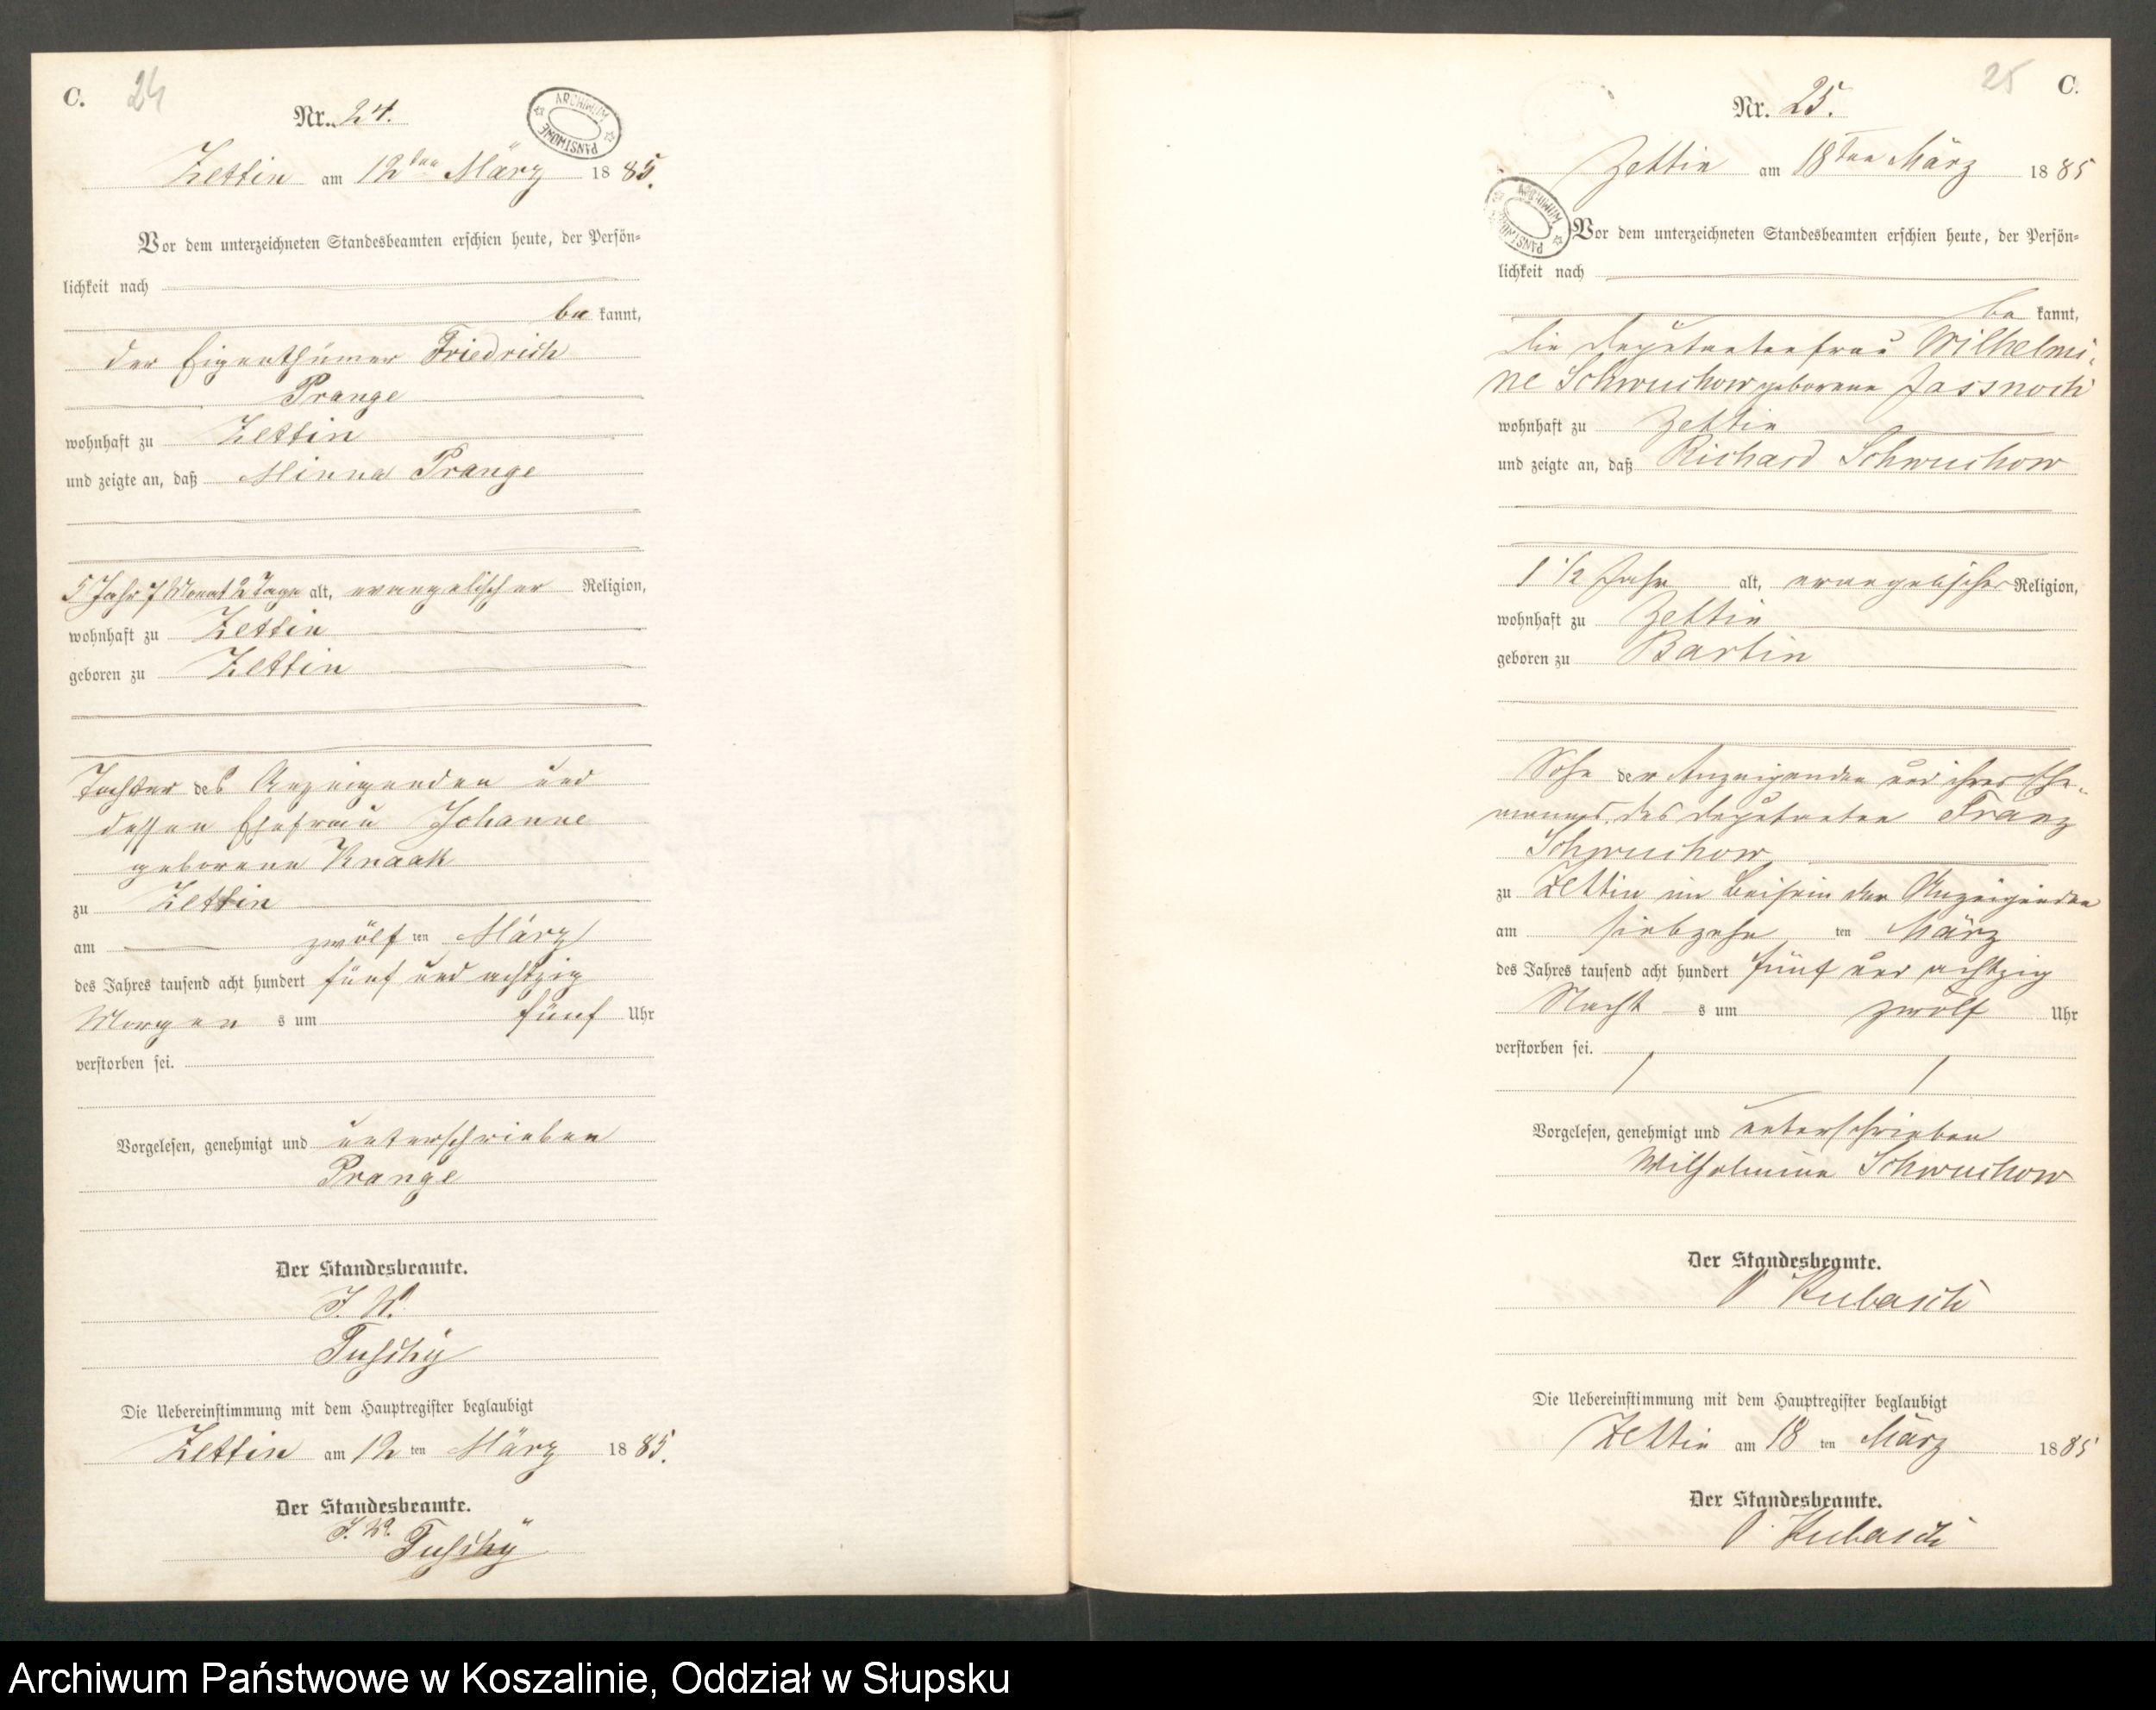 C. 24
Nr. 24.
ARCHIWUM PAŃSTWOWE
Zettin am 12ten März 1885.
Vor dem unterzeichneten Standesbeamten erschien heute, der Persön=
lichkeit nach
be kannt,
der Eigenthümer Friedrich
Prange
wohnhaft zu Zettin
und zeigte an, daß Minna Prange
5 Jahr 7 Monat 2 Tage alt, evangelischer Religion,
wohnhaft zu Zettin
geboren zu Zettin
Tochter des Anzeigenden und
dessen Ehefrau Johanne
geborene Knaak
zu Zettin
am zwölf ten März
des Jahres tausend acht hundert fünf und achtzig
Morgen s um fünf Uhr
verstorben sei.
Vorgelesen, genehmigt und unterschrieben
Prange
Der Standesbeamte.
J. V.
Die Uebereinstimmung mit dem Hauptregister beglaubigt
Zettin am 12 ten März 1885.
Der Standesbeamte.
J. V.
25 C.
Nr. 25.
Zettin am 18ten März 1885
ARCHIWUM PAŃSTWOWE
Vor dem unterzeichneten Standesbeamten erschien heute, der Persön=
lichkeit nach
be kannt,
die Deputantenfrau Wilhelmi-
ne Schwuchow geborene Jassnoch
wohnhaft zu Zettin
und zeigte an, daß Richard Schwuchow
1 1/2 Jahr alt, evangelischer Religion,
wohnhaft zu Zettin
geboren zu Bartin
Sohn der Anzeigenden und ihres Ehe-
mannes, des Deputanten Franz
Schwuchow
zu Zettin im Beisein der Anzeigenden
am siebzehn ten März
des Jahres tausend acht hundert fünf und achtzig
Nacht s um zwölf Uhr
verstorben sei.
Vorgelesen, genehmigt und unterschrieben
Wilhelmine Schwuchow
Der Standesbeamte.
Kubasch
Die Uebereinstimmung mit dem Hauptregister beglaubigt
Zettin am 18 ten März 1885
Der Standesbeamte.
Kubasch
Archiwum Państwowe w Koszalinie, Oddział w Słupsku